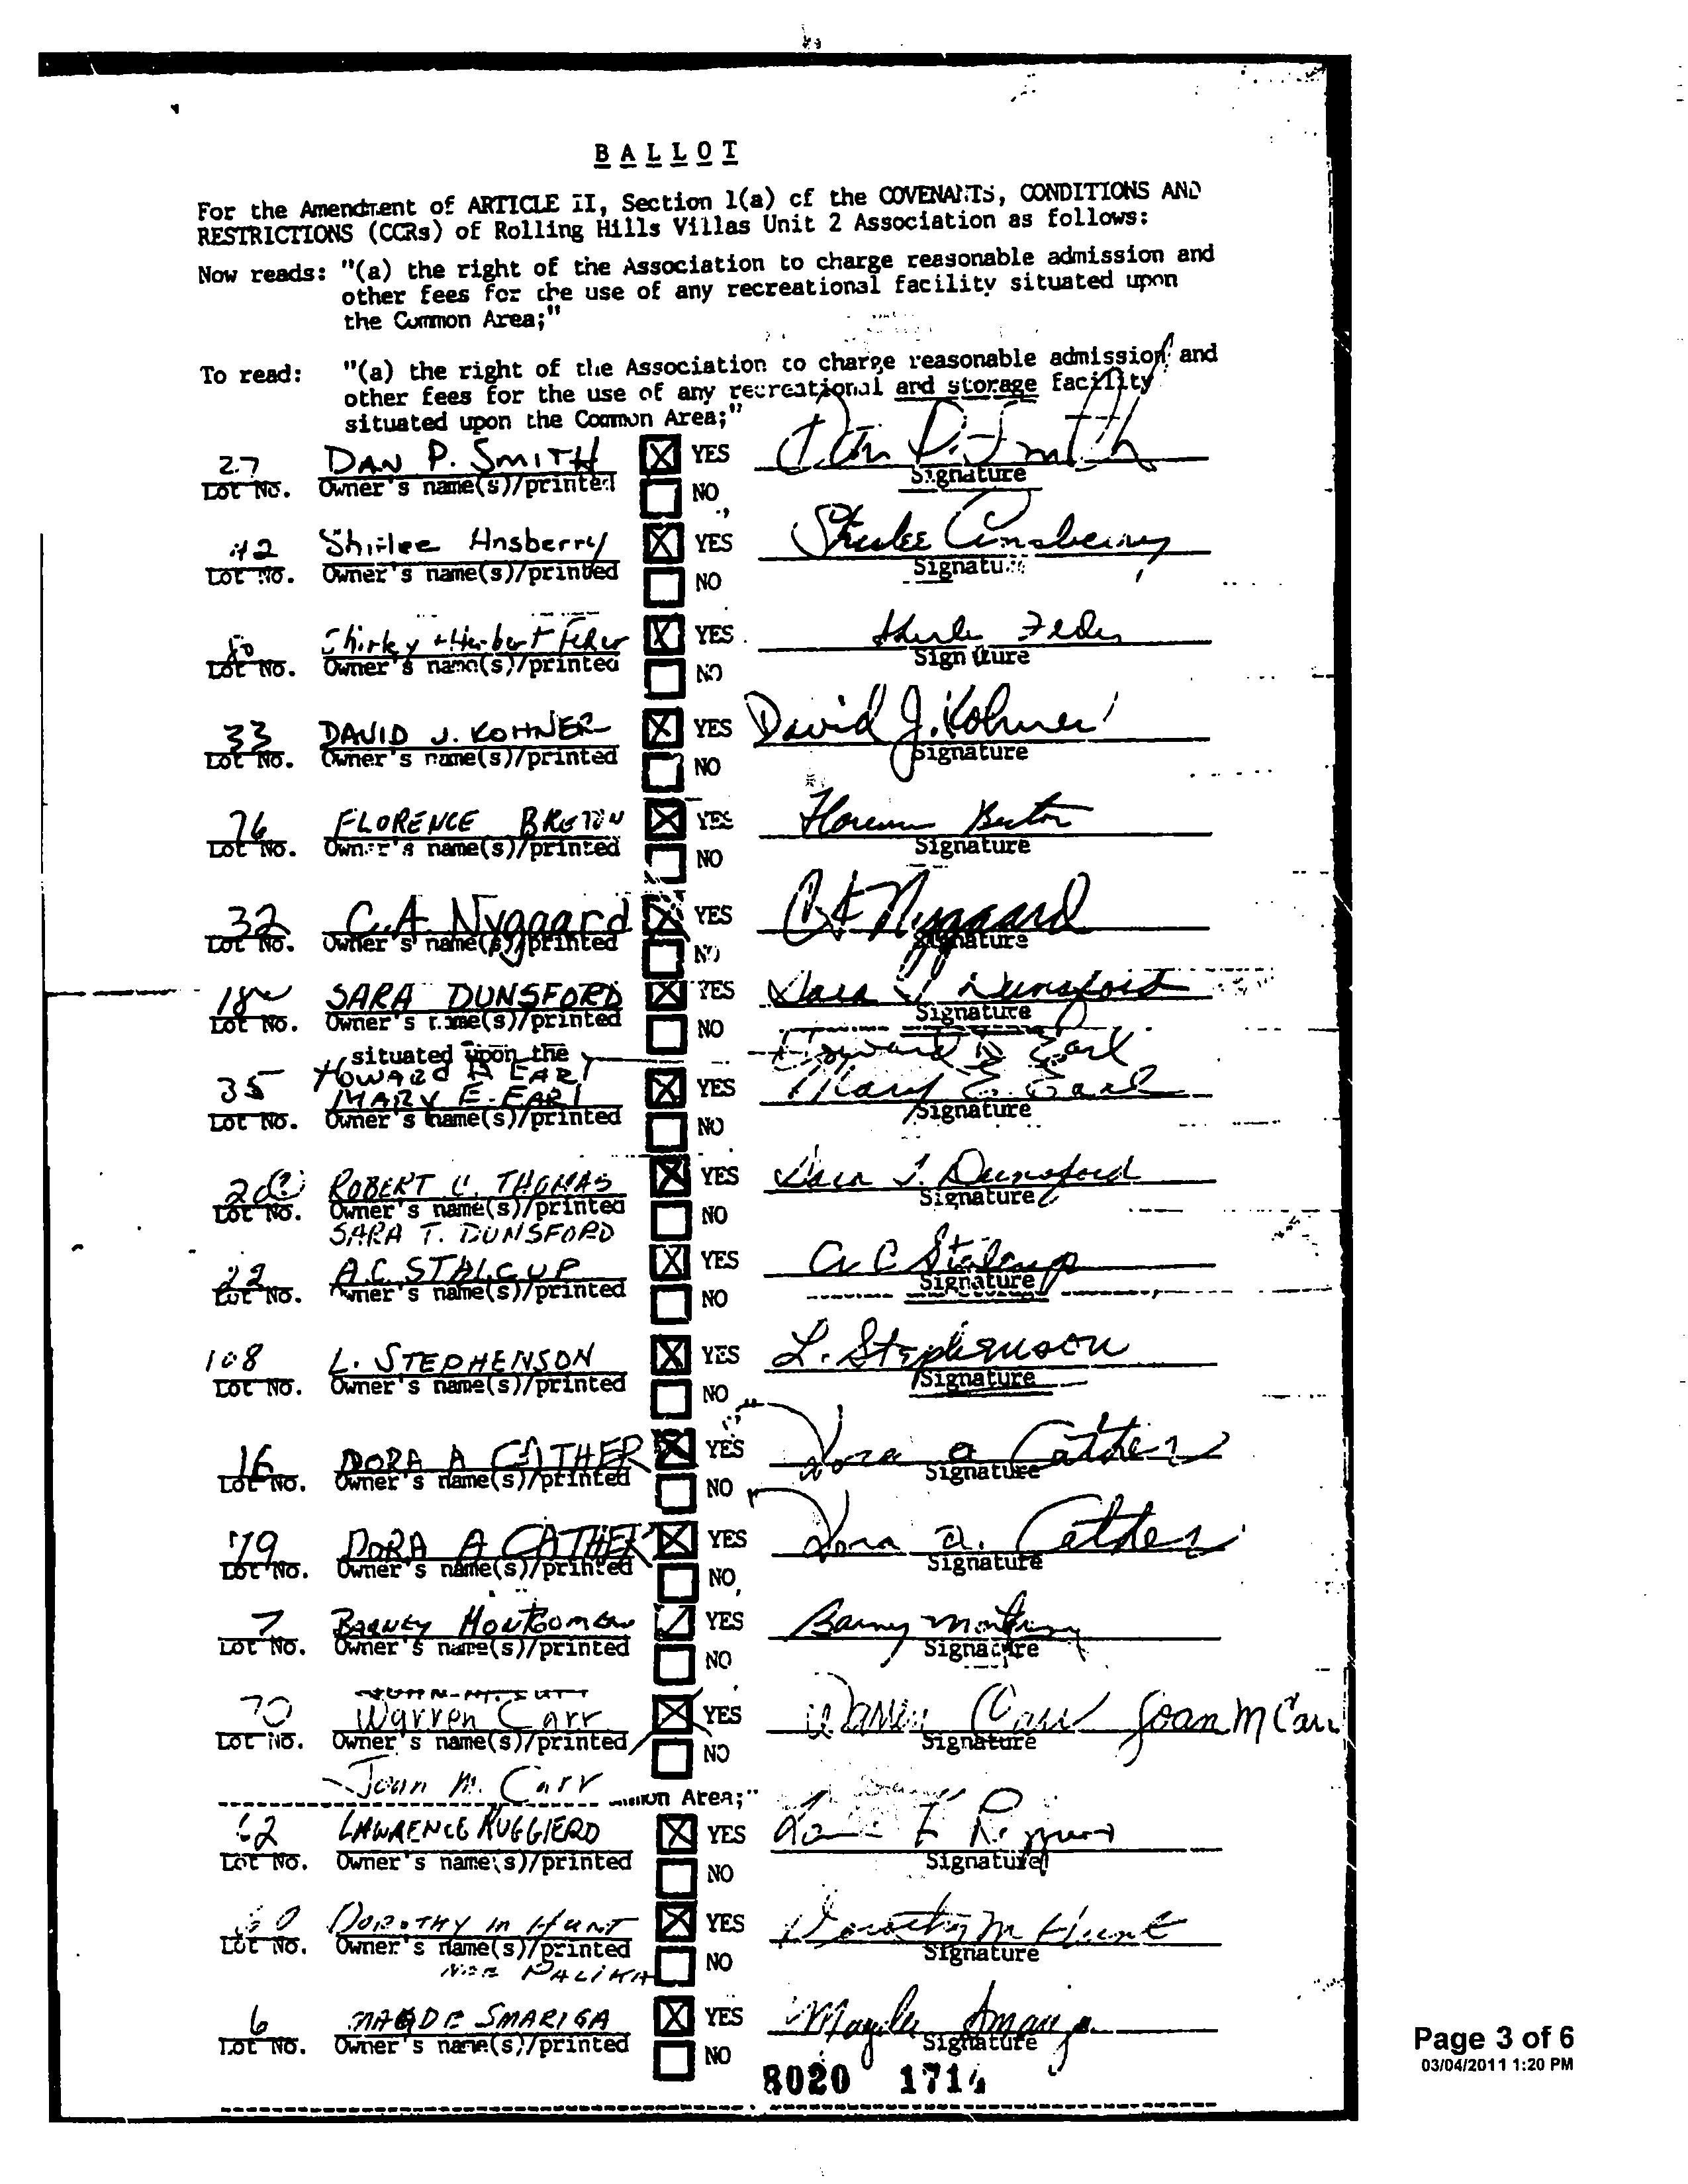 BALLOT
For the Amendment of ARTICLE II, Section 1(a) of the COVENANTS, CONDITIONS AND
RESTRICTIONS (CCRs) of Rolling Hills Villas Unit 2 Association as follows:
Now reads: "(a) the right of the Association to charge reasonable admission and
other fees for the use of any recreational facility situated upon
the Common Area;"
To read: "(a) the right of the Association to charge reasonable admission and
other fees for the use of any recreational and storage facility
situated upon the Common Area;"
27 DAN P. SMITH X YES Dan P. Smith
Lot No. Owner's name(s)/printed NO Signature
42 Shirlee Ansberry X YES Shirlee Ansberry
Lot No. Owner's name(s)/printed NO Signature
80 Shirley + Herbert Feder X YES Feder
Lot No. Owner's name(s)/printed NO Signature
33 DAVID J. KOHNER X YES David J. Kohner
Lot No. Owner's name(s)/printed NO Signature
76 FLORENCE X YES Florence
Lot No. Owner's name(s)/printed NO Signature
32 C.A. Nygaard X YES CA Nygaard
Lot No. Owner's name(s)/printed NO Signature
18 SARA DUNSFORD X YES Sara Dunsford
Lot No. Owner's name(s)/printed NO Signature
situated upon the
HOWARD EARL Howard Earl
35 MARY E. EARL X YES Mary E. Earl
Lot No. Owner's name(s)/printed NO Signature
ROBERT C. THOMAS X YES Sara T. Dunsford
Lot No. Owner's name(s)/printed NO Signature
SARA T. DUNSFORD
22 A.C. STALCUP X YES A C Stalcup
Lot No. Owner's name(s)/printed NO Signature
108 L. STEPHENSON X YES L. Stephenson
Lot No. Owner's name(s)/printed NO Signature
16 DORA A CATHER X YES Dora A Cather
Lot No. Owner's name(s)/printed NO Signature
79 DORA A CATHER X YES Dora A. Cather
Lot No. Owner's name(s)/printed NO Signature
7 BARNEY MONTGOMERY YES Barney Montgomery
Lot No. Owner's name(s)/printed NO Signature
70 Warren Carr X YES Warren Carr Joan M Carr
Lot No. Owner's name(s)/printed NO Signature
Joan M. Carr
Area;"
62 LAWRENCE RUGGIERO X YES
Lot No. Owner's name(s)/printed NO Signature
DOROTHY M HUNT X YES Dorothy M Hunt
Lot No. Owner's name(s)/printed NO Signature
PALIKA
6 MAGDE SMARIGA X YES Smariga
Lot No. Owner's name(s)/printed NO Signature
8020 1714
Page 3 of 6
03/04/2011 1:20 PM